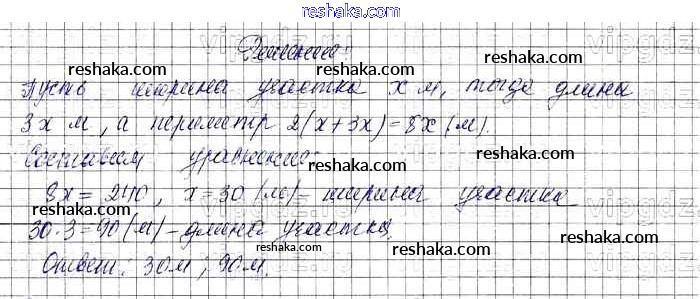 reshaka.com
Решение:
reshaka.com reshaka.com
Пусть ширина участка x м, тогда длина
reshaka.com
3x м, а периметр 2(x+3x)=8x (м).
reshaka.com reshaka.com
Составим уравнение:
8x=240, x=30 (м)- ширина участка
reshaka.com reshaka.com
30·3=90(м)-длина участка.
reshaka.com reshaka.com
Ответ: 30м; 90м.
reshaka.com